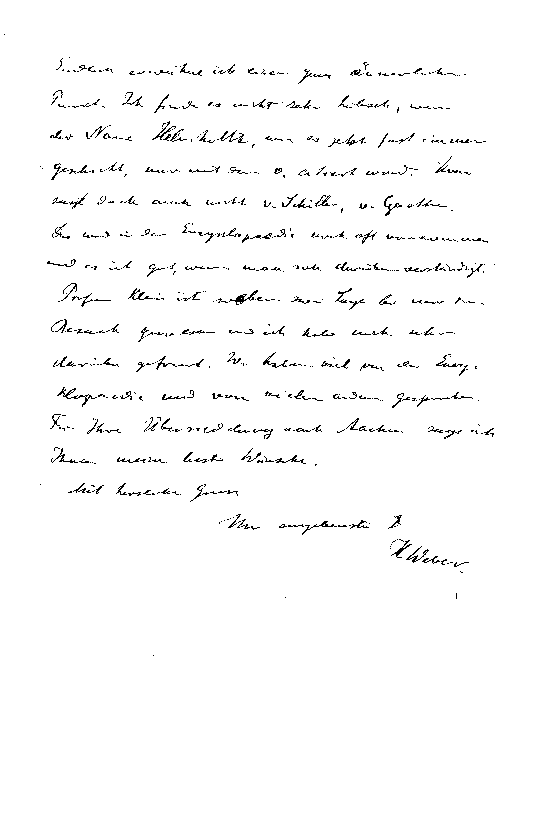 Endlich erwähne ich einen ganz äusserlichen
Punct. Ich finde es nicht sehr hübsch, wenn
der Name Helmholtz, wie es jetzt fast immer
geschieht, nur mit dem v. citirt wird. Man
sagt doch auch nicht v. Schiller, v. Goethe.
Das wird in der Encyklopaedie noch oft vorkommen
und es ist gut, wenn man sich darüber verständigt.
Prof. Klein ist soeben zwei Tage bei mir zum
Besuch gewesen und ich habe mich sehr
darüber gefreut. Wir haben viel von der Ency-
klopaedie und von vielem andern gesprochen.
Für Ihre Übersiedelung nach Aachen sage ich
Ihnen meine besten Wünsche.
Mit herzlichem Gruss
Ihr ergebenster
H Weber.